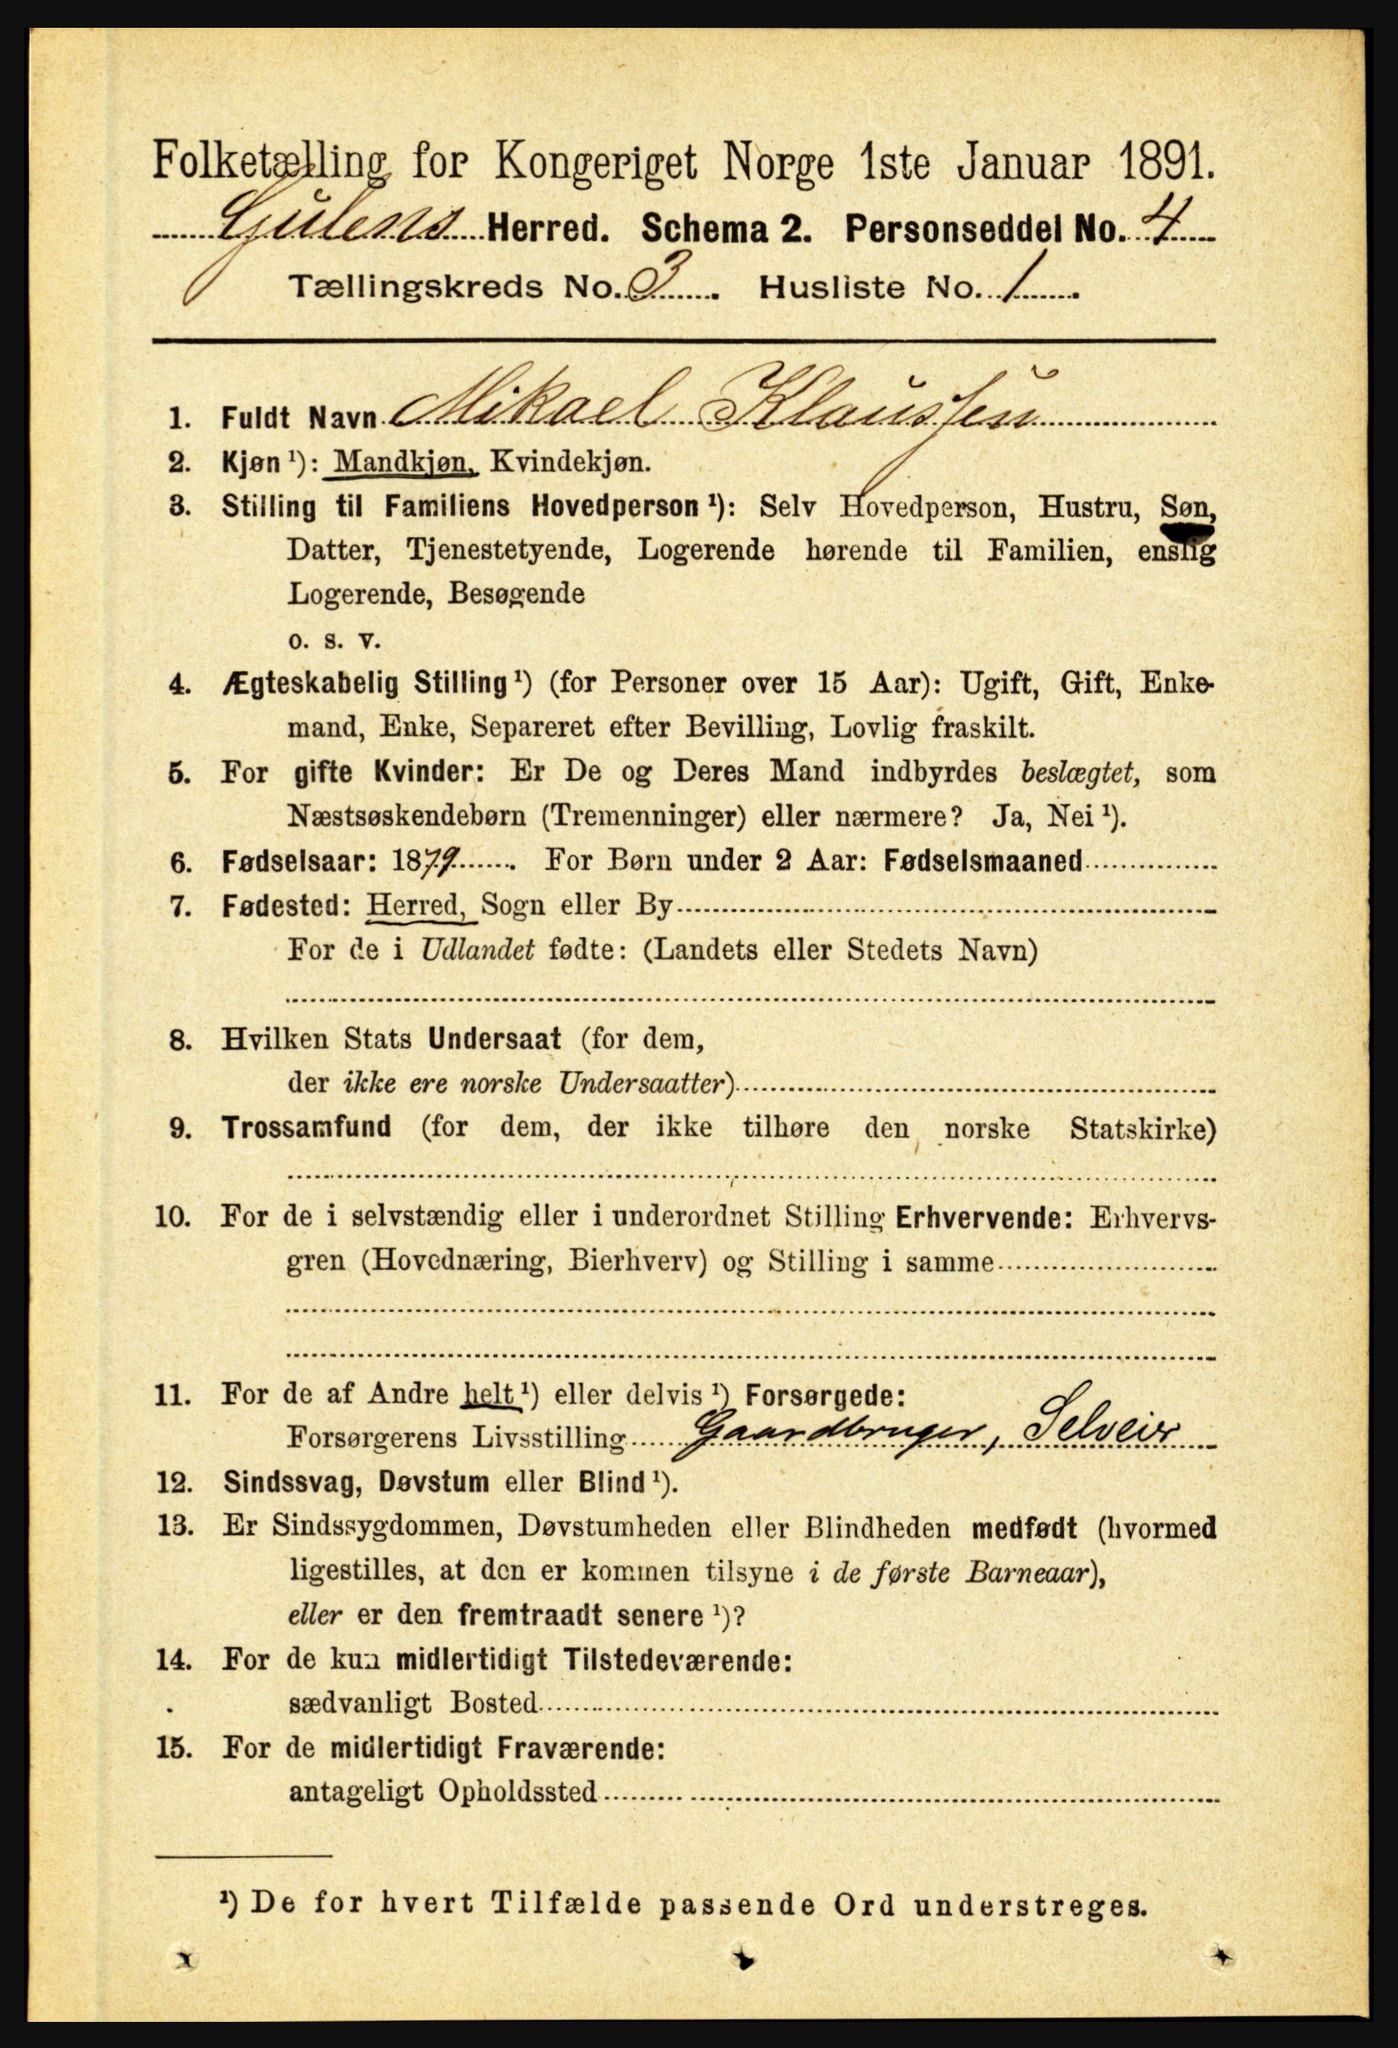 Folketælling for Kongeriget Norge 1ste Januar 1891.
Gulens Herred. Schema 2. Personseddel No. 4
Tællingskreds No. 3. Husliste No. 1.
1. Fuldt Navn Mikael Klaussen
2. Kjøn¹): Mandkjøn, Kvindekjøn.
3. Stilling til Familiens Hovedperson¹): Selv Hovedperson, Hustru, Søn,
Datter, Tjenestetyende, Logerende hørende til Familien, enslig
Logerende, Besøgende
o. s. v.
4. Ægteskabelig Stilling¹) (for Personer over 15 Aar): Ugift, Gift, Enke-
mand, Enke, Separeret efter Bevilling, Lovlig fraskilt.
5. For gifte Kvinder: Er De og Deres Mand indbyrdes beslægtet, som
Næstsøskendebørn (Tremenninger) eller nærmere? Ja, Nei¹).
6. Fødselsaar: 1879. For Børn under 2 Aar: Fødselsmaaned
7. Fødested: Herred, Sogn eller By
For de i Udlandet fødte: (Landets eller Stedets Navn)
8. Hvilken Stats Undersaat (for dem,
der ikke ere norske Undersaatter)
9. Trossamfund (for dem, der ikke tilhøre den norske Statskirke)
10. For de i selvstændig eller i underordnet Stilling Erhvervende: Erhvervs-
gren (Hovednæring, Bierhverv) og Stilling i samme
11. For de af Andre helt¹) eller delvis¹) Forsørgede:
Forsørgerens Livsstilling Gaardbruger, Selveier
12. Sindssvag, Døvstum eller Blind¹).
13. Er Sindssygdommen, Døvstumheden eller Blindheden medfødt (hvormed
ligestilles, at den er kommen tilsyne i de første Barneaar),
eller er den fremtraadt senere¹)?
14. For de kun midlertidigt Tilstedeværende:
sædvanligt Bosted
15. For de midlertidigt Fraværende:
antageligt Opholdssted
¹) De for hvert Tilfælde passende Ord understreges.